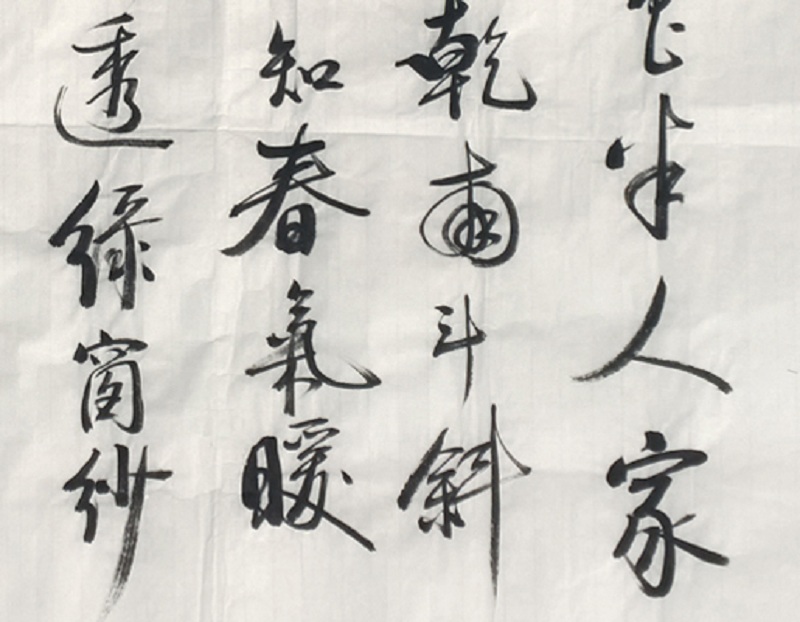 半人家
乾南斗斜
知春氣暖
透綠窗紗